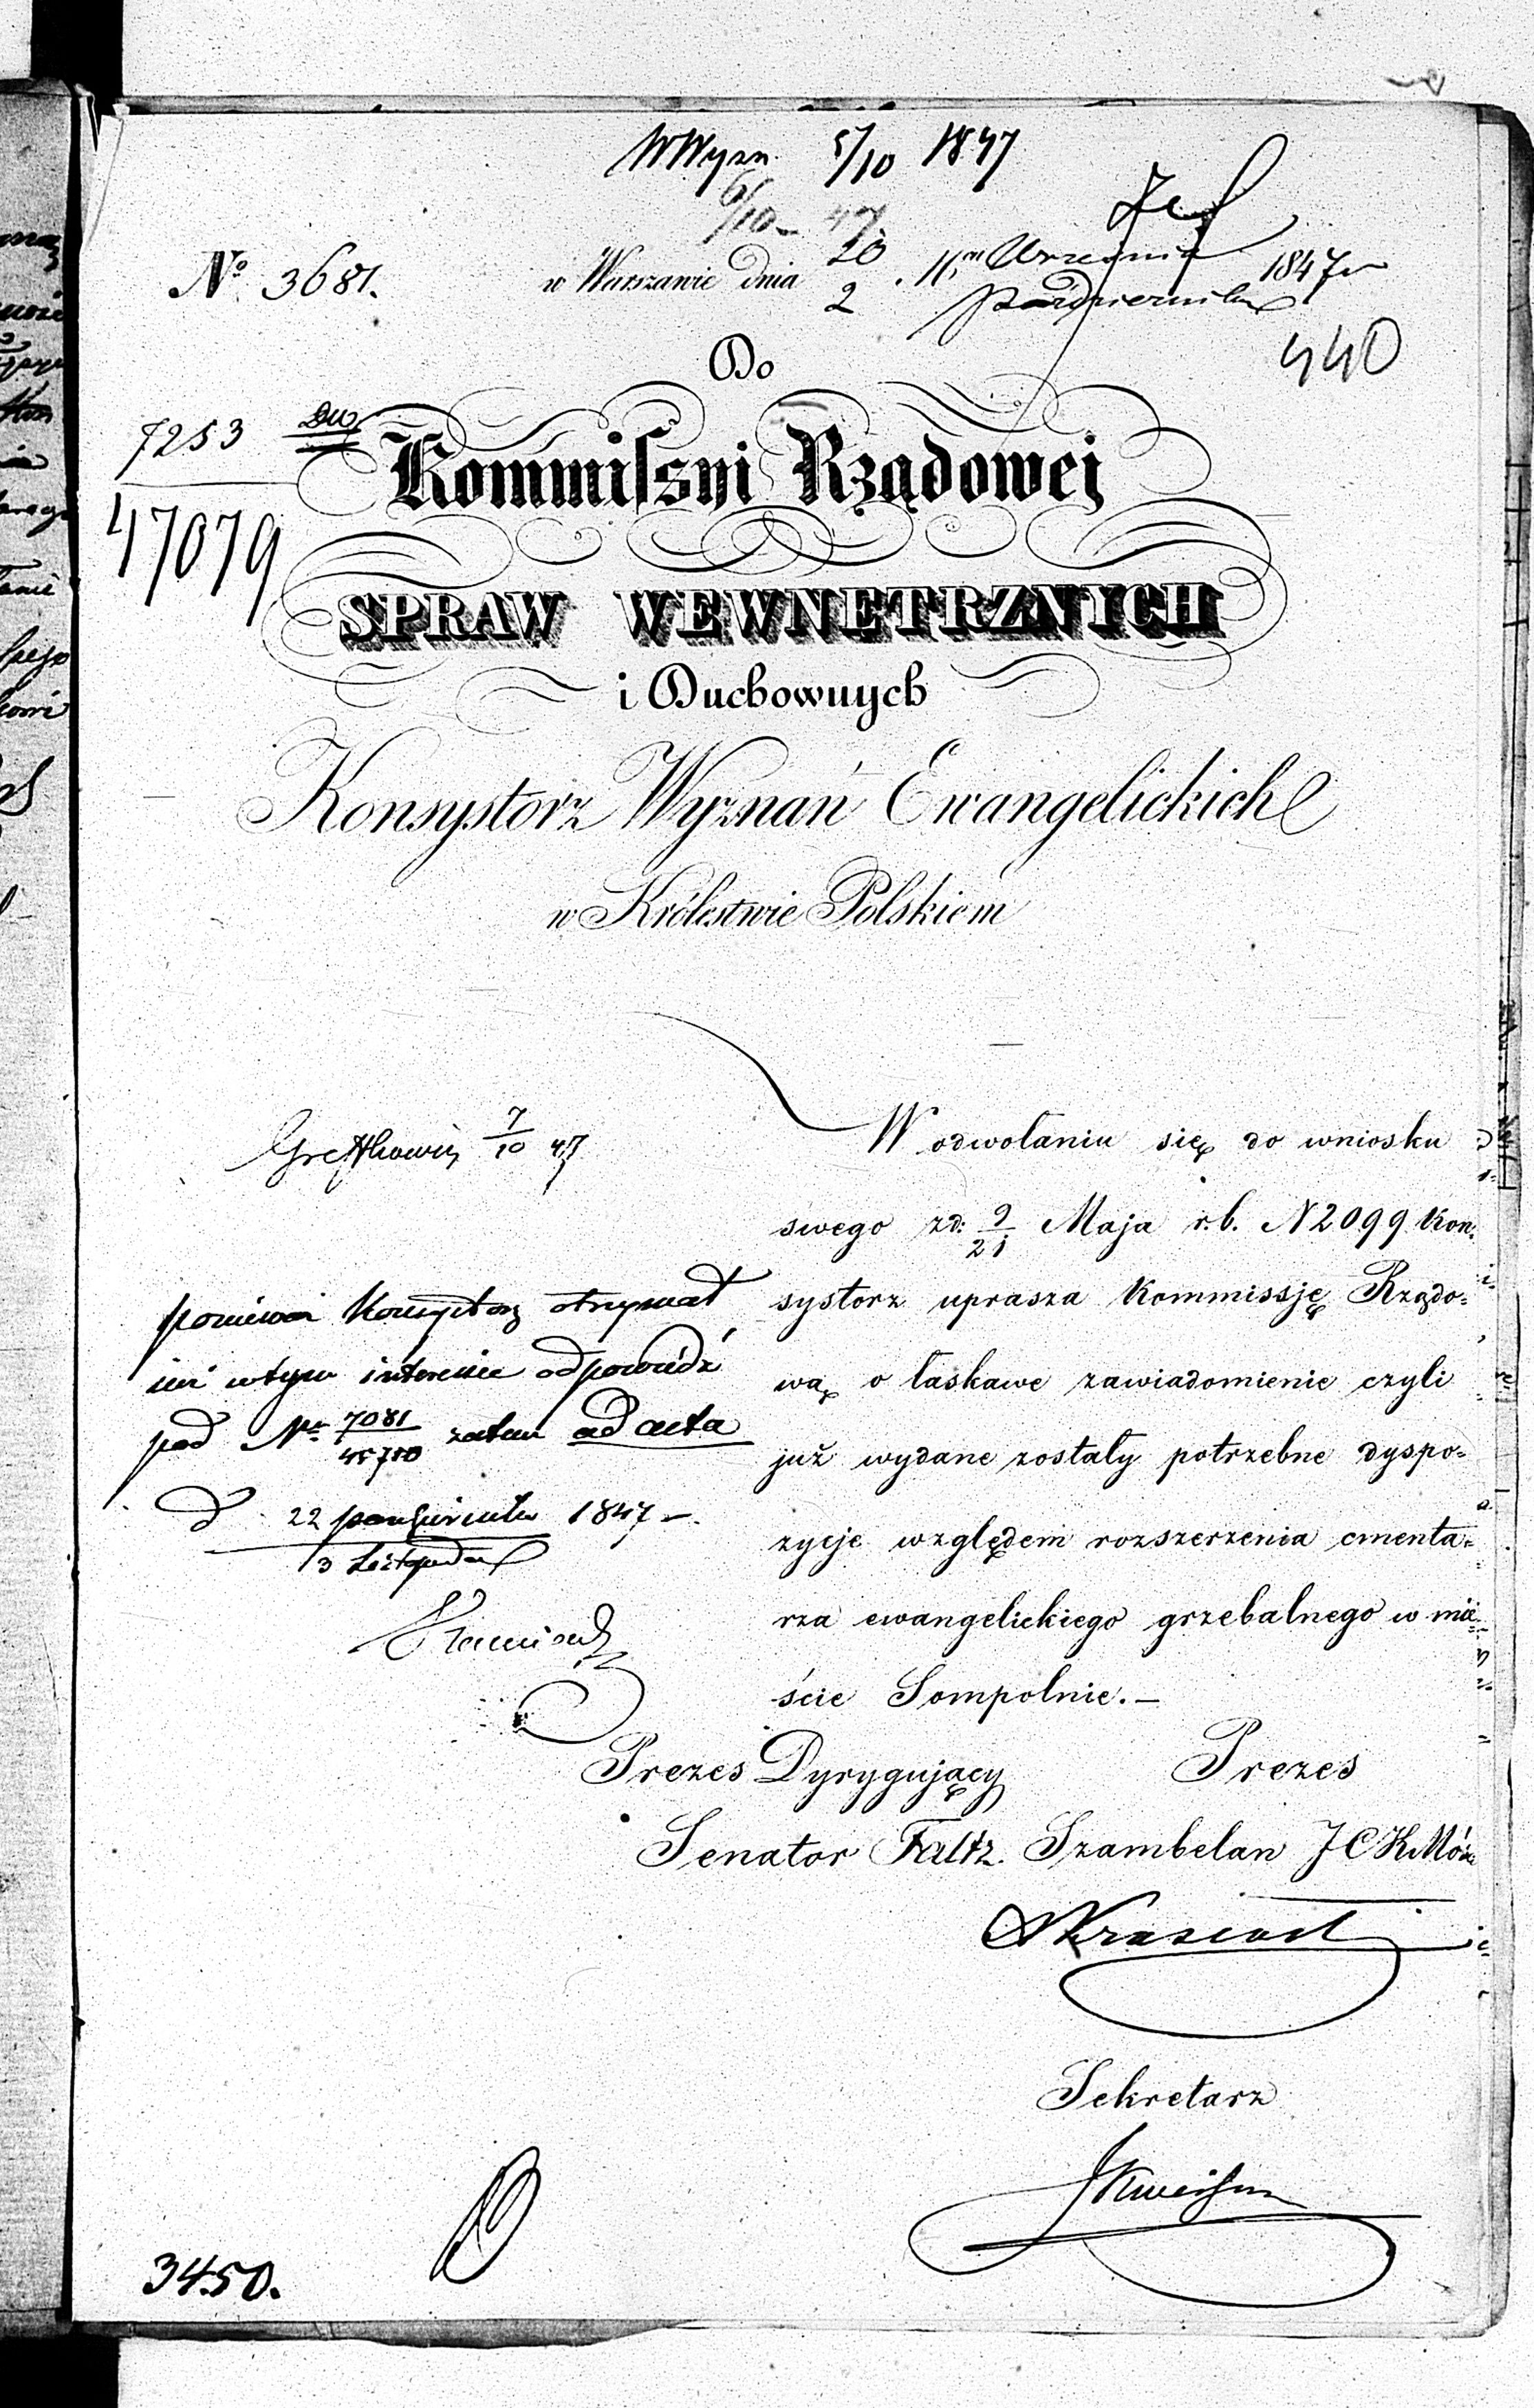 WWyzn. 5/10 1847
6/10 - 47
No. 3681.
w Warszawie dnia 20/2 Września/Października 1847
440
Do
7253
47079
Kommissyi Rządowej
SPRAW WEWNĘTRZNYCH
i Duchownych
Konsystorz Wyznań Ewangelickich
w Królestwie Polskiem
7/10 47
W odwołaniu się do wniosku
swego zd: 9/21 Maja r.b. N 2099 Kon-
systorz uprasza Kommissję Rządo=
wą o łaskawe zawiadomienie czyli
już wydane zostały potrzebne dyspo=
zycje względem rozszerzenia cmenta=
rza ewangelickiego grzebalnego w mie=
ście Sompolnie.—
ponieważ Konsystorz otrzymał
już w tym interesie odpowiedź
pod Nr 7081/45780 zatem ad acta
d 22 października/3 Listopada 1847
Prezes Dyrygujący
Senator Faltz.
Prezes
Szambelan J C K Mości
Sekretarz
3450.